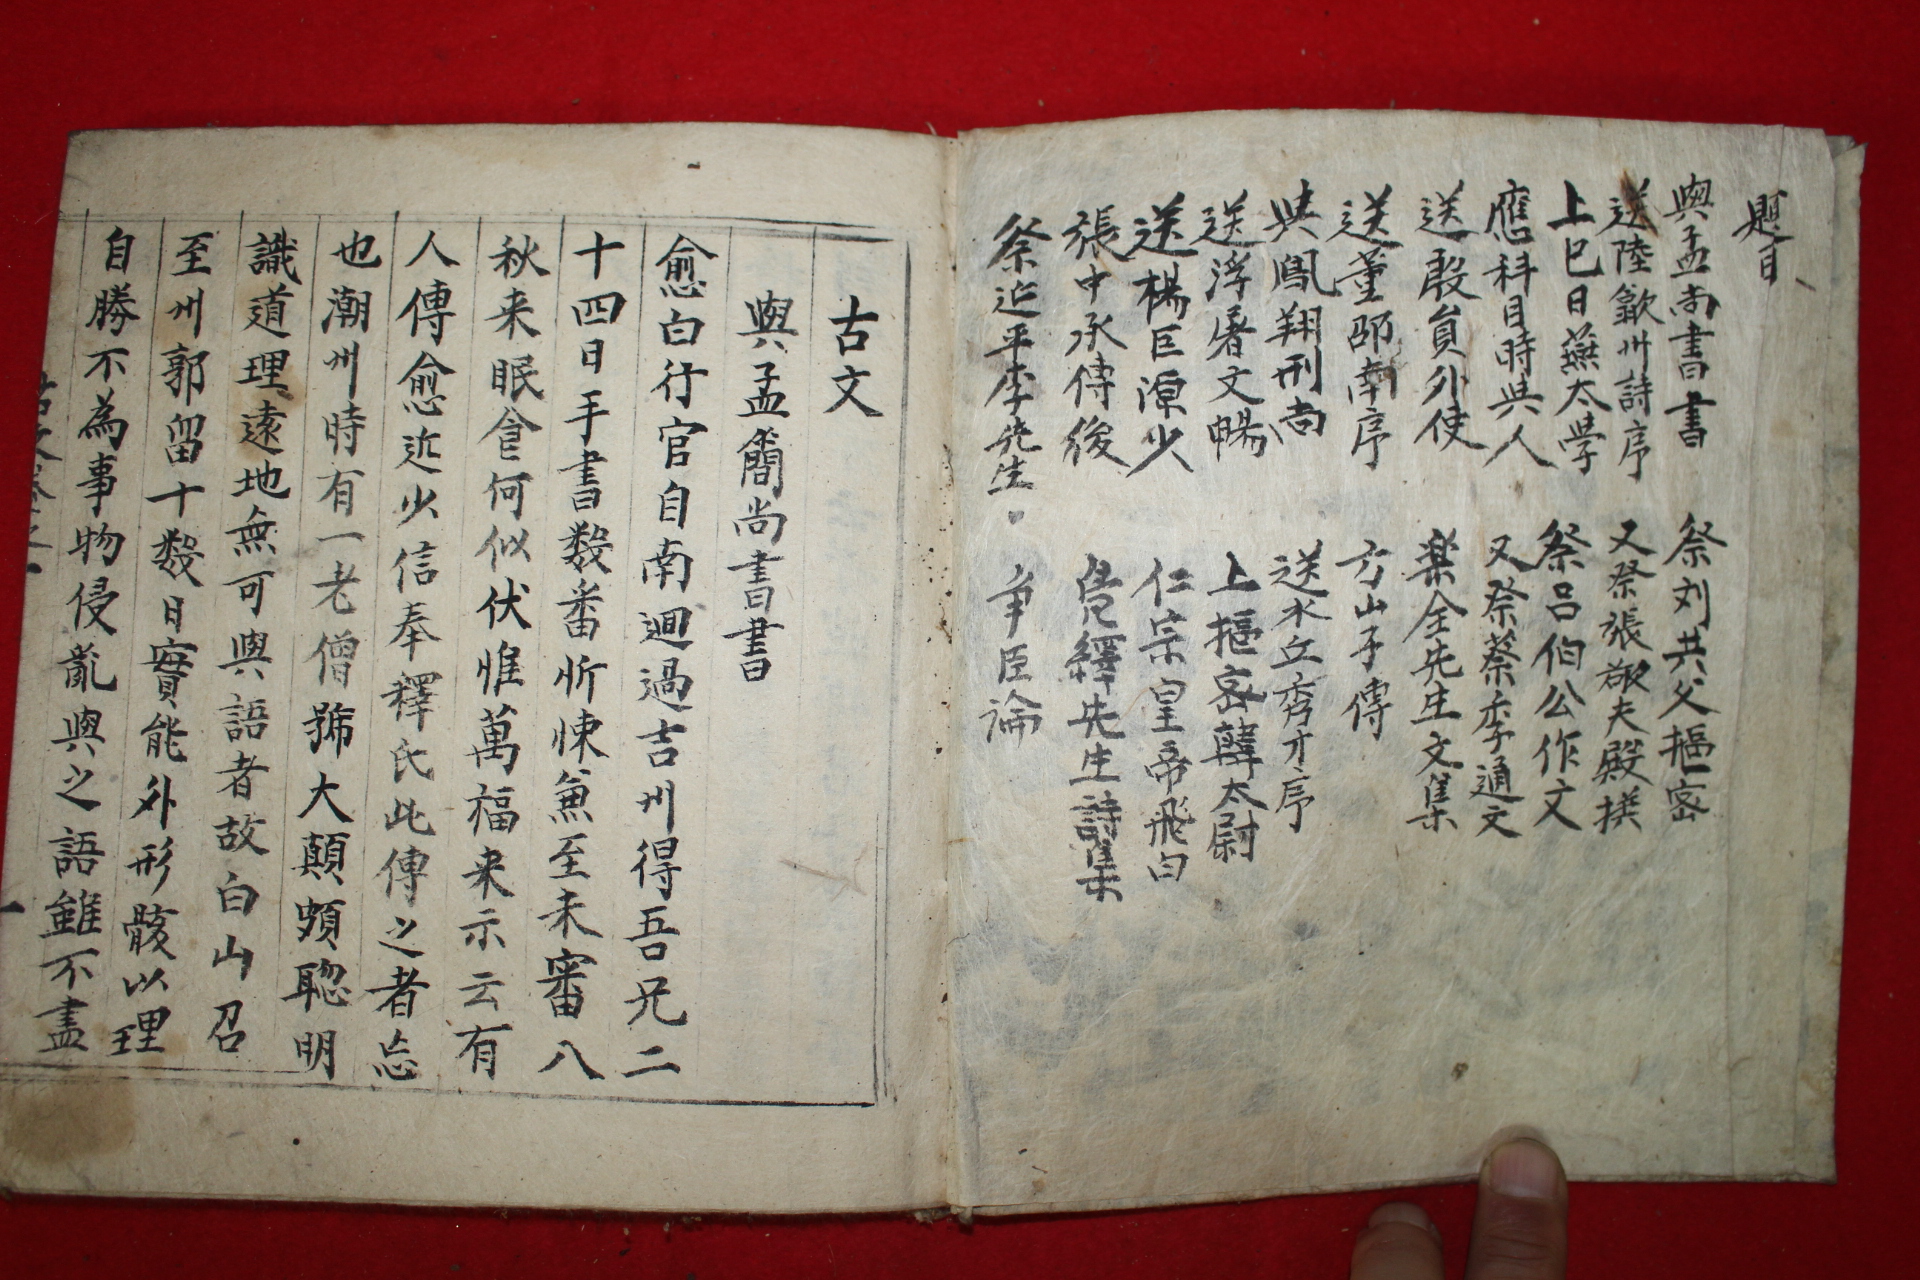 題目
與孟尚書書
送陸歙州詩序
上巳日燕太學
應科目時與人
送殷員外使
送董邵南序
與鳳翔刑尚
送浮屠文暢
送楊巨源少
張中丞傳後
祭延平李先生
祭刘共父摳密
又祭張敬夫殿撰
祭呂伯公作文
又祭蔡季通文
樂全先生文集
方山子傳
送水丘秀才序
上摳密韓太尉
仁宗皇帝飛白
鳧繹先生詩集
爭臣論
古文
與孟簡尚書書
愈白行官自南迴過吉州得吾兄二
十四日手書数番忻悚兼至未審八
秋来眠食何似伏惟萬福来示云有
人傳愈近少信奉釋氏此傳之者忘
也潮州時有一老僧號大顛頗聡明
識道理遠地無可與語者故自山召
至州郭留十数日實能外形骸以理
自勝不為事物侵亂與之語雖不盡
古文卷之一
一